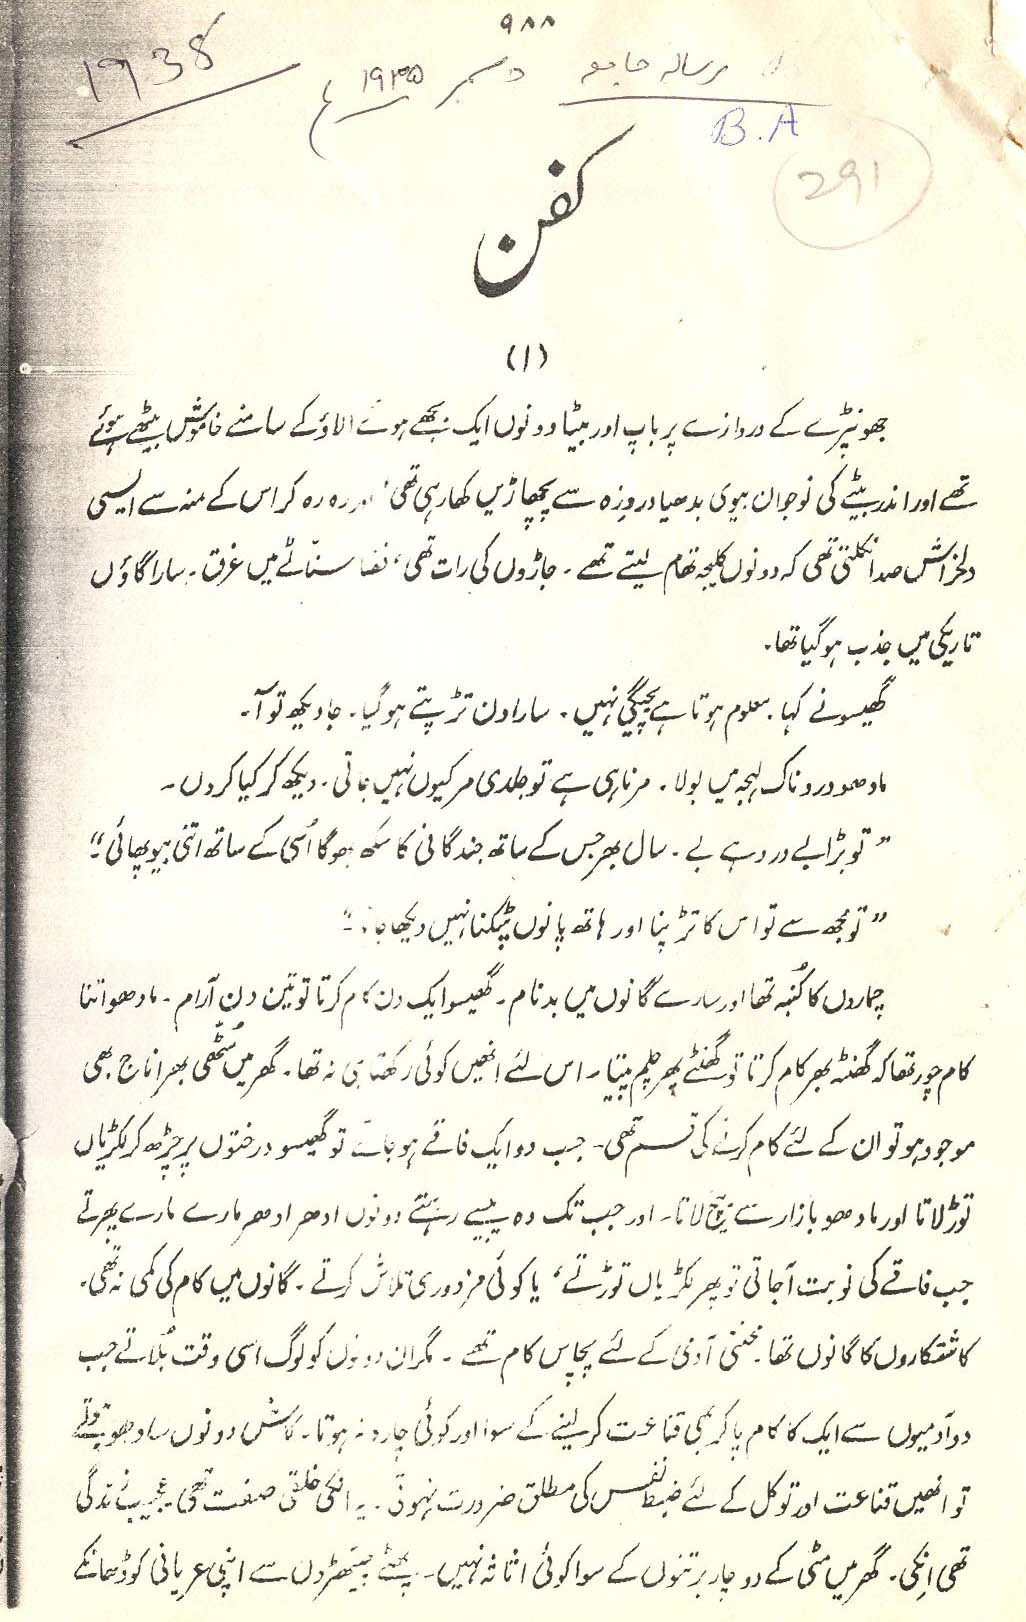 ۹۸۸
1938
رسالہ جامعہ دسمبر ۱۹۳۵ء
B.A
291
کفن
(۱)
جھونپڑے کے دروازے پر باپ اور بیٹا دونوں ایک بجھے ہوئے الاؤ کے سامنے خاموش بیٹھے ہوئے
تھے اور اندر بیٹے کی نوجوان بیوی بدھیا دردزہ سے پچھاڑیں کھا رہی تھی، اور رہ رہ کر اس کے منہ سے ایسی
دلخراش صدا نکلتی تھی کہ دونوں کلیجہ تھام لیتے تھے۔ جاڑوں کی رات تھی، فضا سنّاٹے میں غرق۔ سارا گاؤں
تاریکی میں جذب ہو گیا تھا۔
گھیسو نے کہا۔ معلوم ہوتا ہے بچیگی نہیں۔ سارا دن تڑپتے ہو گیا۔ جا دیکھ تو آ۔
مادھو دردناک لہجہ میں بولا۔ مرنا ہی ہے تو جلدی مر کیوں نہیں جاتی۔ دیکھ کر کیا کروں۔
”تو بڑا بے درد ہے بے۔ سال بھر جس کے ساتھ جندگانی کا سکھ بھوگا اُسی کے ساتھ اتنی بیوپھائی۔“
”تو مجھ سے تو اس کا تڑپنا اور ہاتھ پانوں پٹکنا نہیں دیکھا جاتا۔“
چماروں کا کُنبہ تھا اور سارے گانوں میں بدنام۔ گھیسو ایک دن کام کرتا تو تین دن آرام۔ مادھو اتنا
کام چور تھا کہ گھنٹہ بھر کام کرتا تو گھنٹے بھر چلم پیتا۔ اس لئے انھیں کوئی رکھتا ہی نہ تھا۔ گھر میں مُٹّھی بھر اناج بھی
موجود ہو تو ان کے لئے کام کرنے کی قسم تھی۔ جب دو ایک فاقے ہو جاتے تو گھیسو درختوں پر چڑھ کر لکڑیاں
توڑ لاتا اور مادھو بازار سے بیچ لاتا۔ اور جب تک وہ پیسے رہتے دونوں ادھر ادھر مارے مارے پھرتے
جب فاقے کی نوبت آ جاتی تو پھر لکڑیاں توڑتے، یا کوئی مزدوری تلاش کرتے۔ گانوں میں کام کی کمی نہ تھی۔
کاشتکاروں کا گانوں تھا۔ محنتی آدمی کے لئے پچاس کام تھے۔ مگر ان دونوں کو لوگ اسی وقت بُلاتے جب
دو آدمیوں سے ایک کا کام پا کر بھی قناعت کر لینے کے سوا اور کوئی چارہ نہ ہوتا۔ کاش دونوں سادھو ہوتے
تو انھیں قناعت اور توکل کے لئے ضبط نفس کی مطلق ضرورت نہ ہوتی۔ یہ انکی خلقی صفت تھی۔ عجیب زندگی
تھی انکی۔ گھر میں مٹی کے دو چار برتنوں کے سوا کوئی اثاثہ نہیں۔ پھٹے چیتھڑوں سے اپنی عریانی کو ڈھانکے